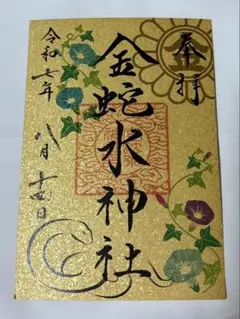 奉拝
金蛇水神社
令和七年
八月十四日